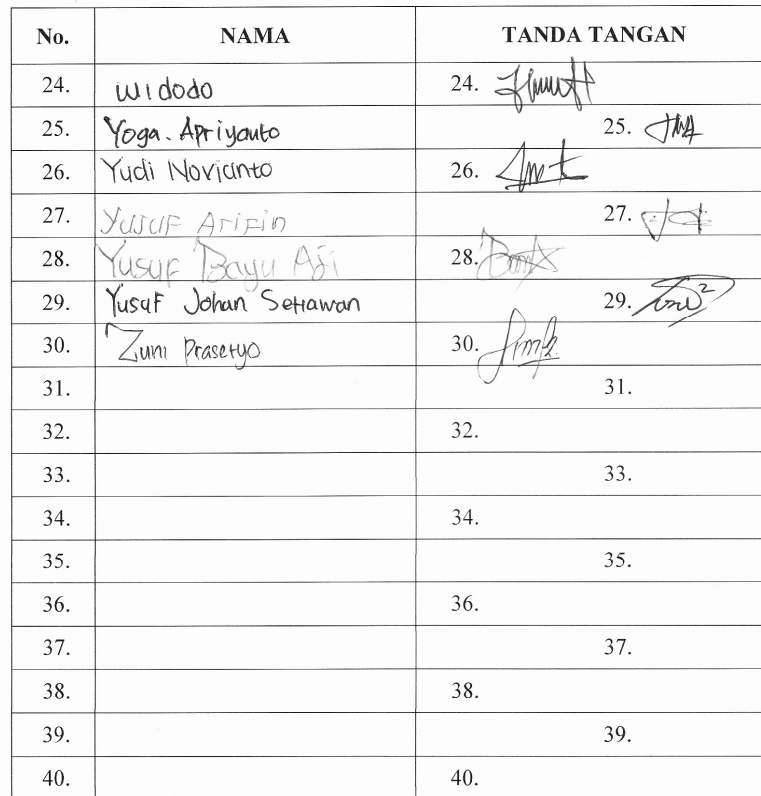 No. NAMA TANDA TANGAN
24. Widodo 24.
25. Yoga. Apriyanto 25.
26. Yudi Novianto 26.
27. Yusuf Arifin 27.
28. Yusuf Bayu Aji 28.
29. Yusuf Johan Setiawan 29.
30. Zuni Prasetyo 30.
31. 31.
32. 32.
33. 33.
34. 34.
35. 35.
36. 36.
37. 37.
38. 38.
39. 39.
40. 40.